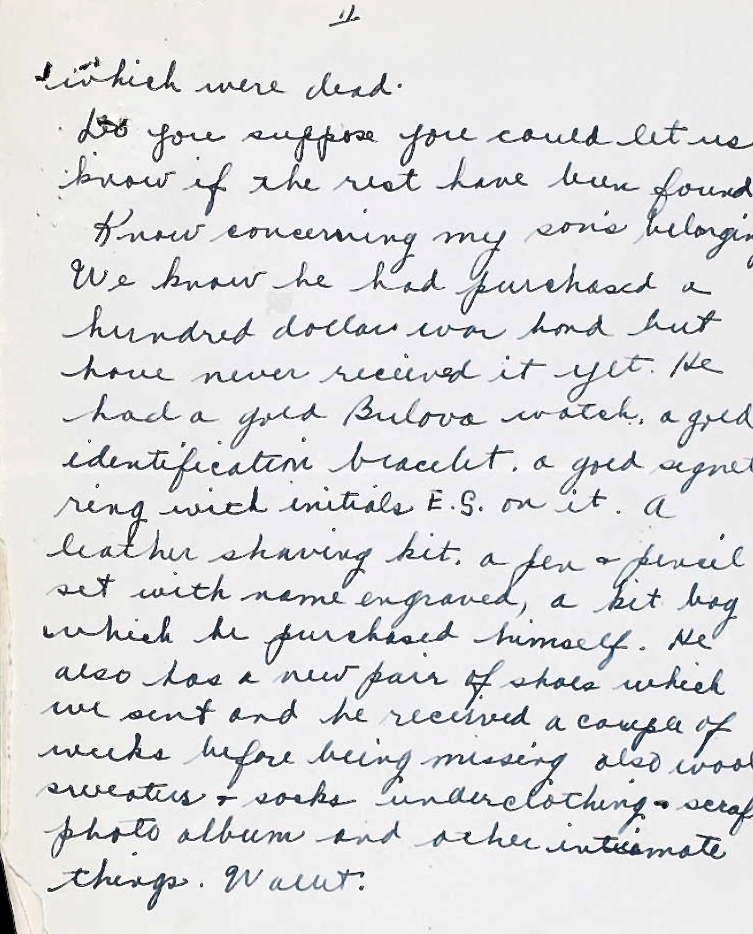 11
which were dead.
Do you suppose you could let us
know if the rest have been found
Know concerning my son's belongin
We know he had purchased a
hundred dollar war bond but
have never received it yet. He
had a gold Bulova watch, a gold
identification bracelet, a gold signet
ring with initials E.G. on it. A
leather shaving kit, a pen & pencil
set with name engraved, a kit bag
which he purchased himself. He
also has a new pair of shoes which
we sent and he received a couple of
weeks before being missing also wool
sweaters & socks underclothing & scrap
photo album and other intimate
things. Wallet.